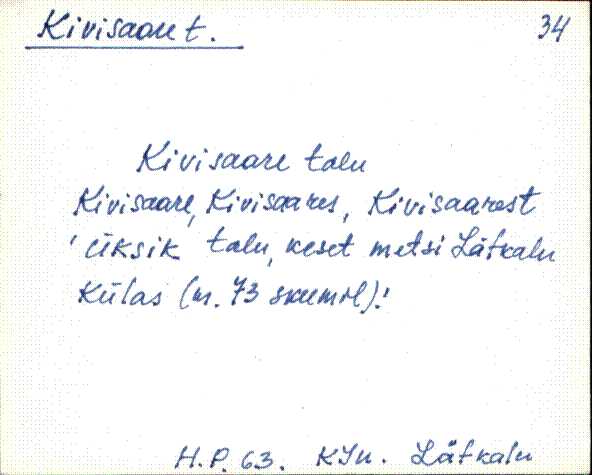 Kivisaare t. 34
Kivisaare talu
Kivisaare, Kivisaares, Kivisaarest
'üksik talu, keset metsi Lätkalu
külas (nr. 73 skeemil).'
H.P. 63. KJn. Lätkalu